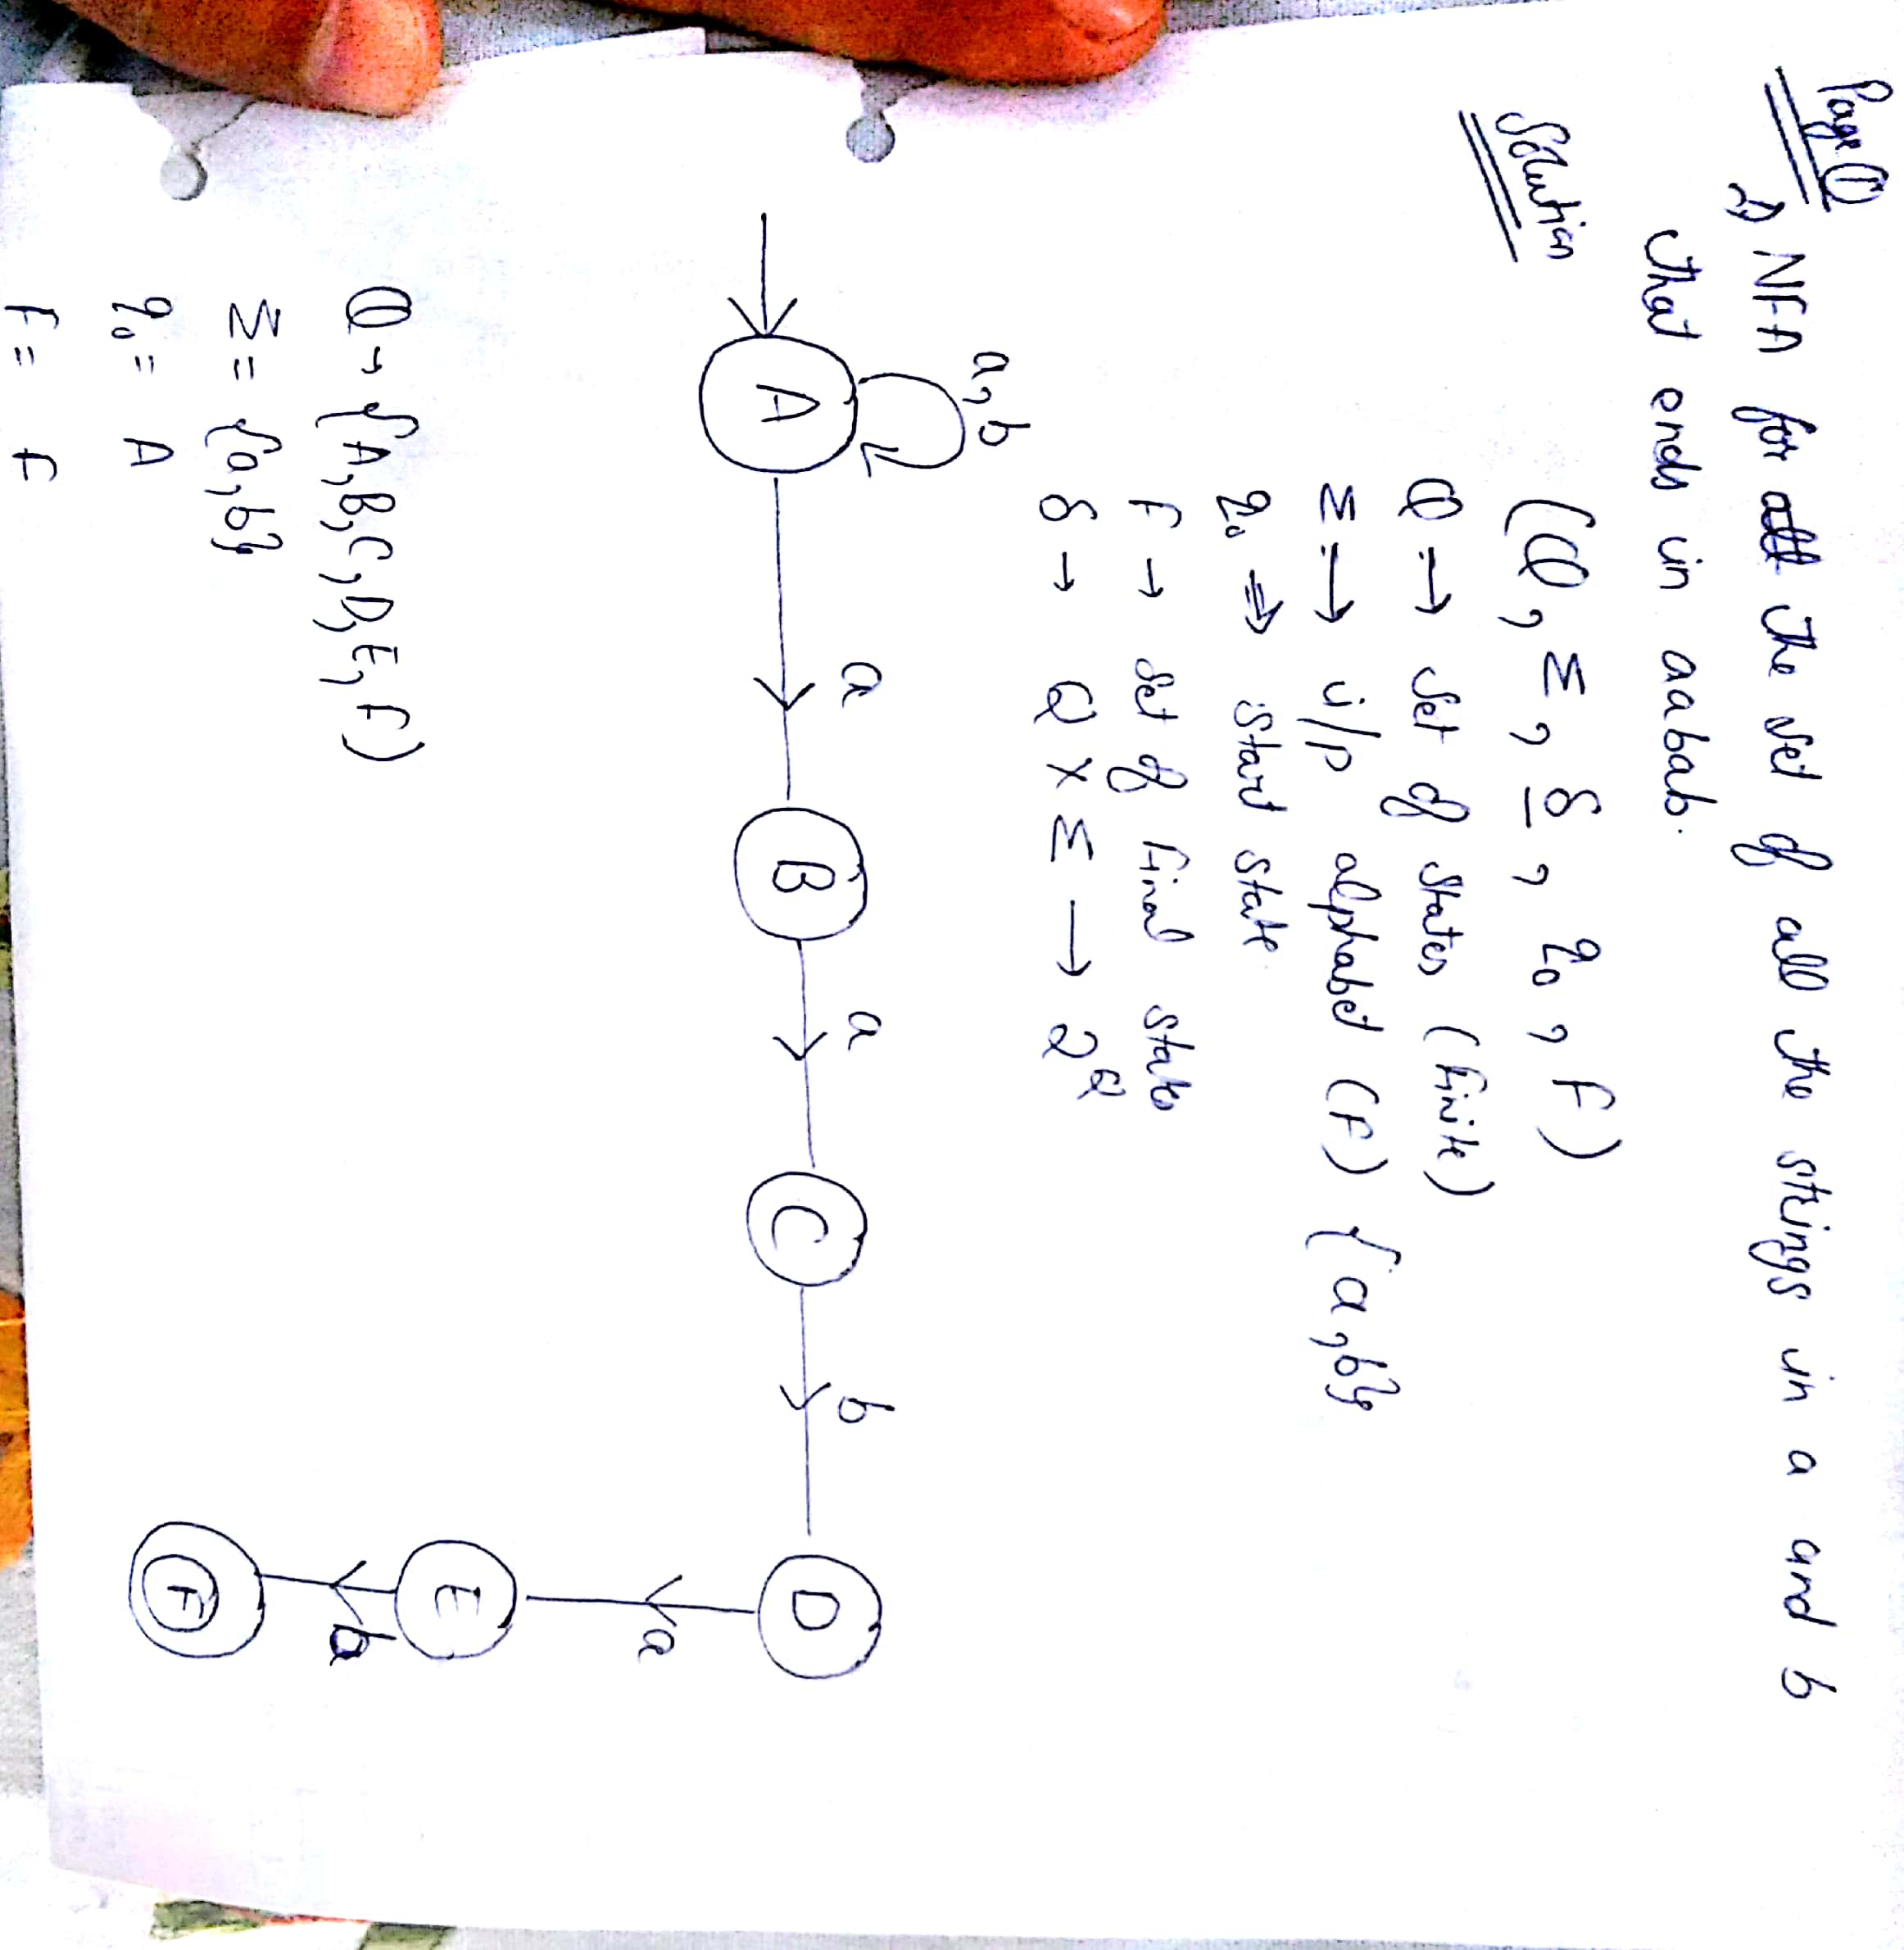 Page ①
1) NFA for the set of all the strings in a and b
that ends in aabab.
Solution
(Q, Σ, δ, q₀, F)
Q → Set of states (finite)
Σ → i/p alphabet (F) {a,b}
q₀ ⇒ start state
F → Set of final states
δ → Q × Σ → 2^Q
a, b
a a b
A B C D
a
E
b
F
Q → {A,B,C,D,E,F)
Σ = {a,b}
q₀ = A
F = F